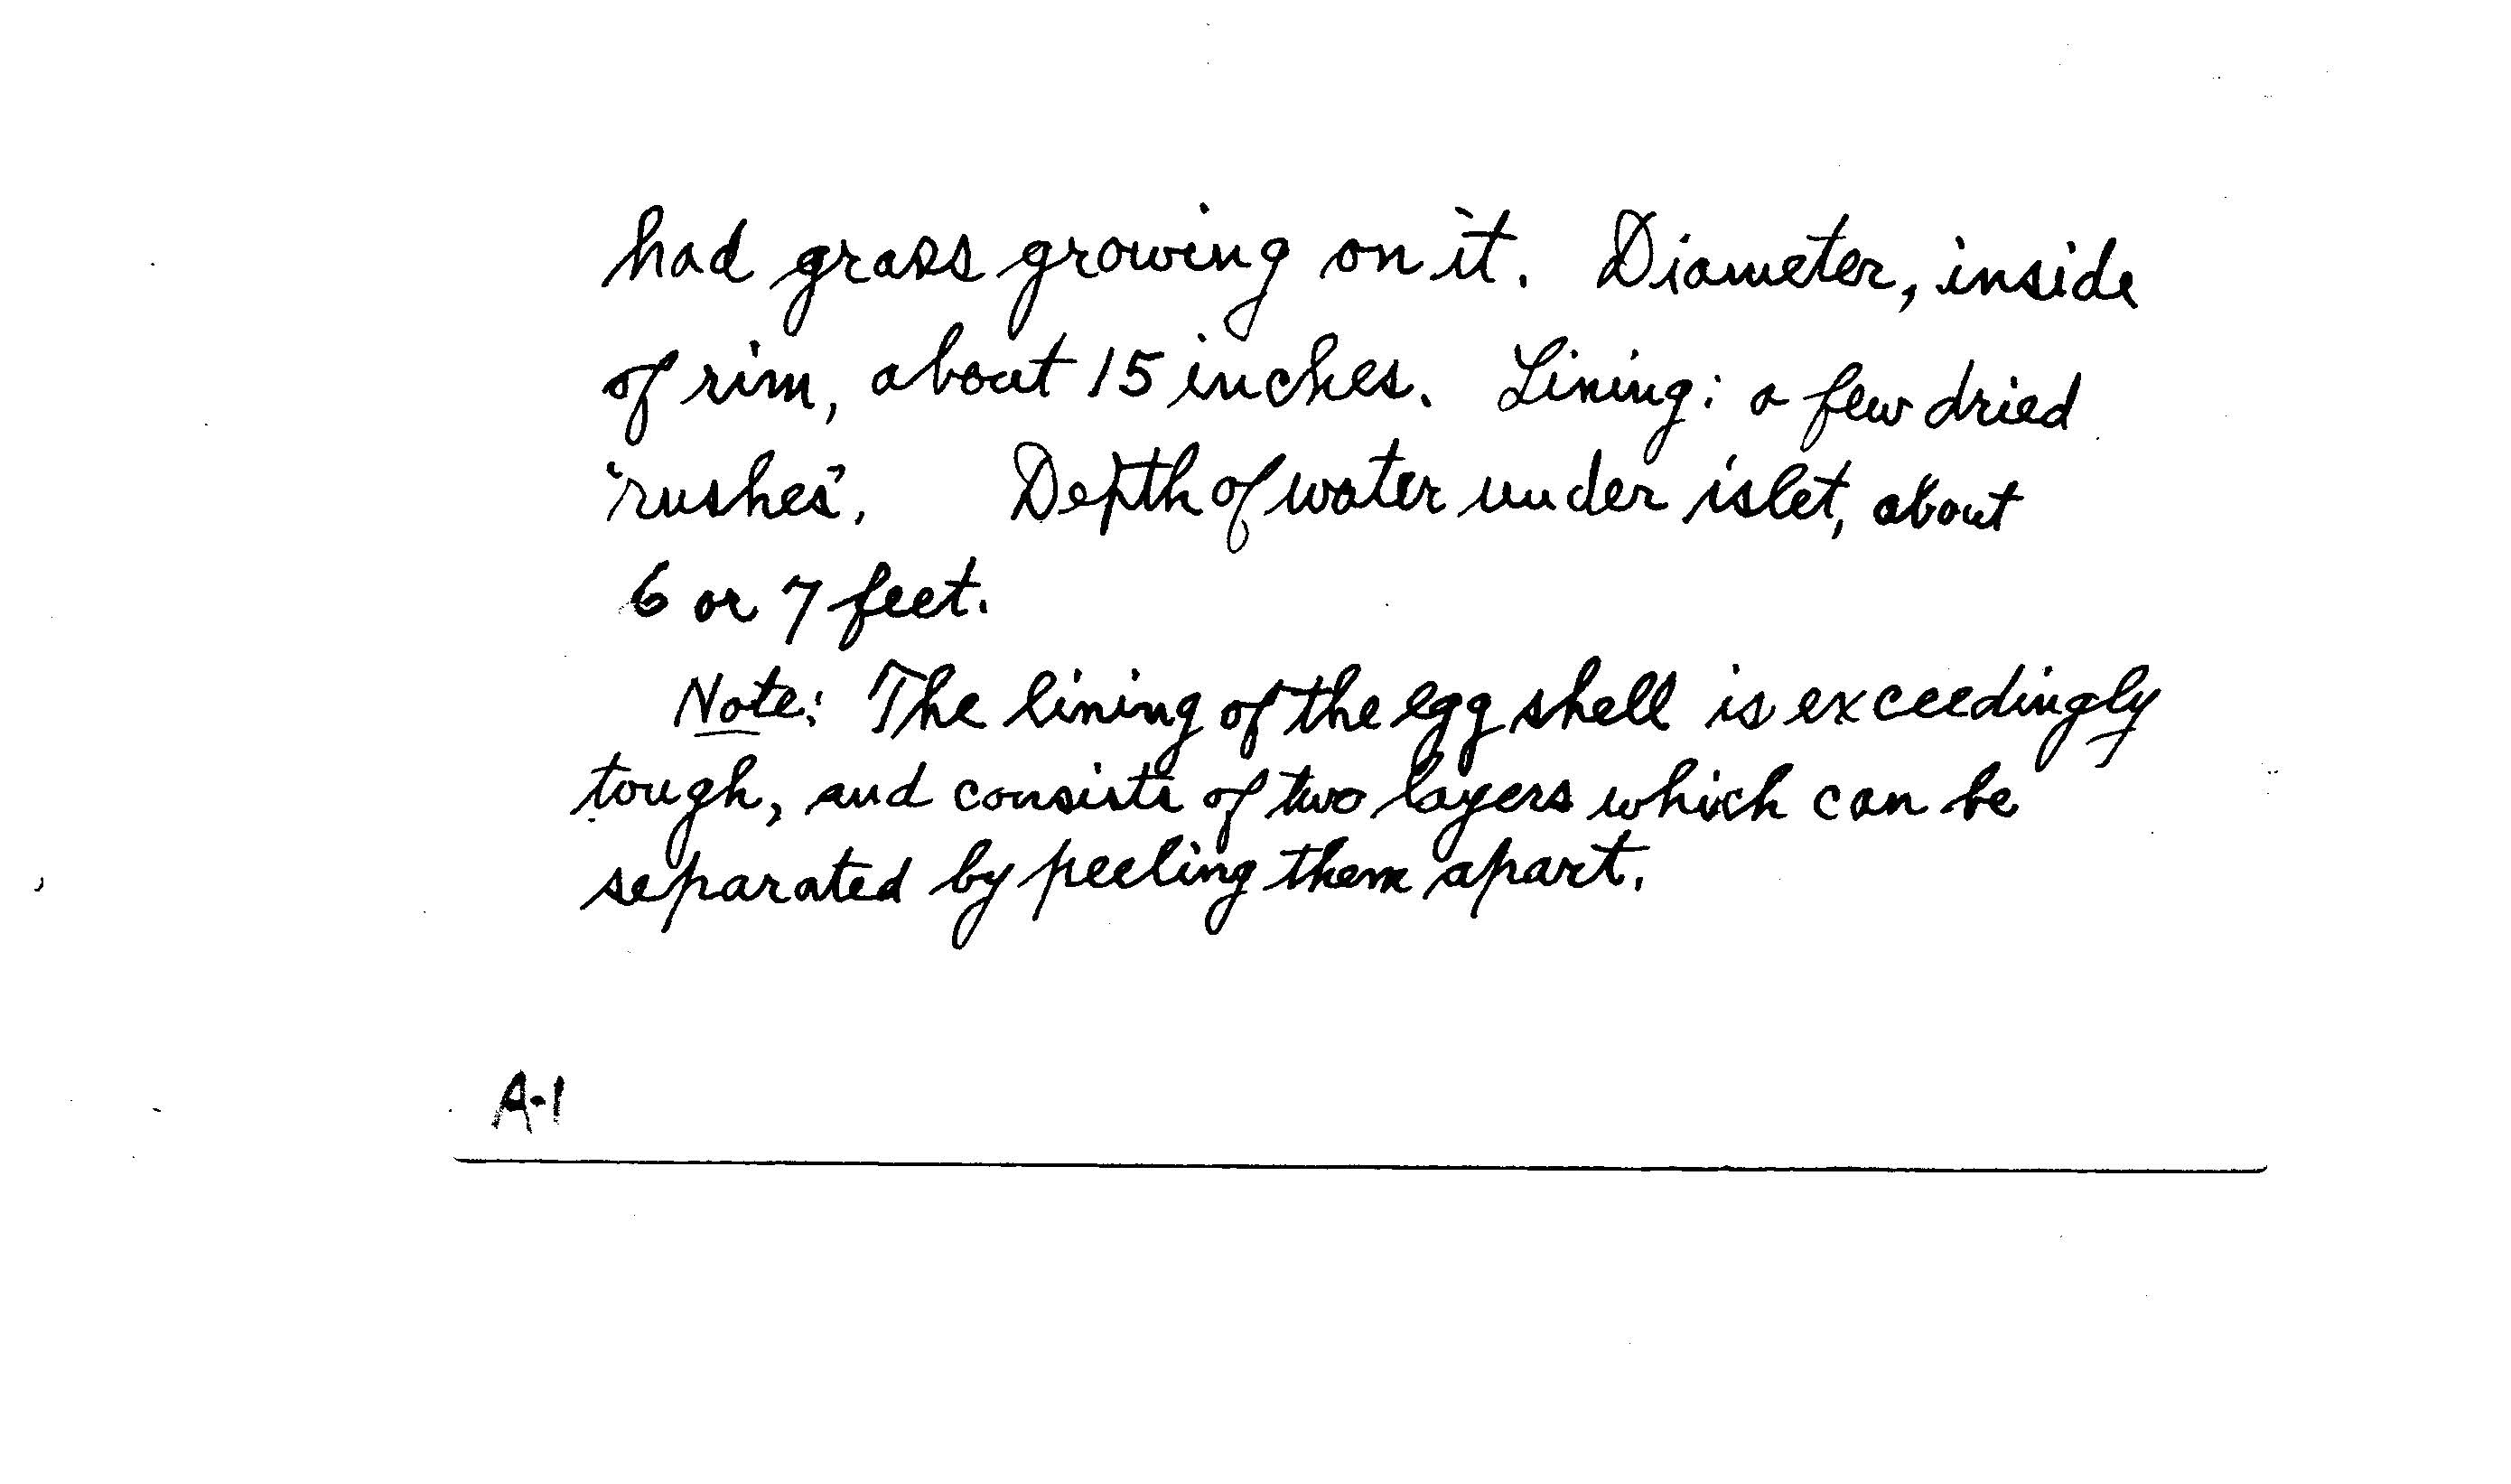 had grass growing on it. Diameter, inside
of rim, about 15 inches. Lining: a few dried
'rushes'. Depth of water under islet, about
6 or 7 feet.
Note: The lining of the egg shell is exceedingly
tough, and consists of two layers which can be
separated by peeling them apart.
A-1